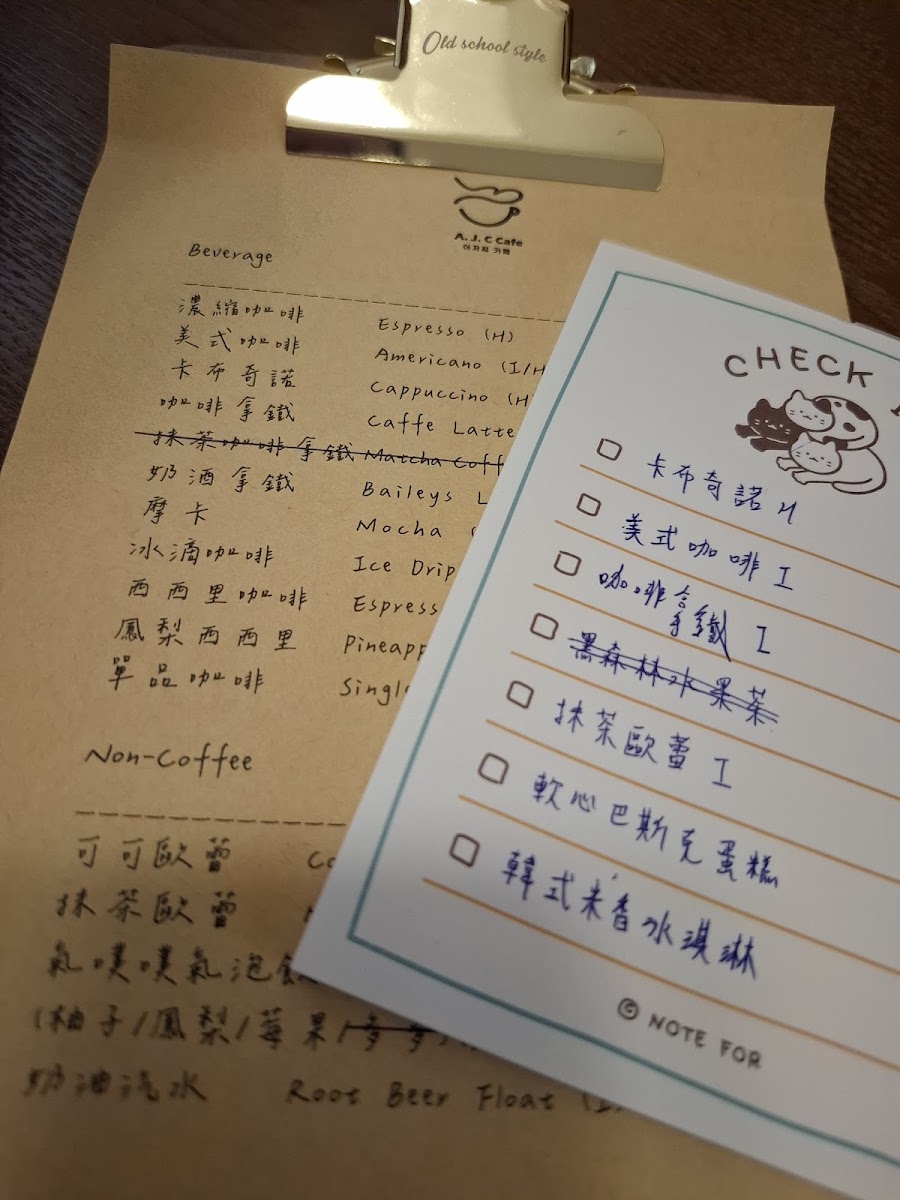 Old school style
A. J. C Cafe
아저씨 카페
Beverage
濃縮咖啡 Espresso (H)
美式咖啡 Americano (I/H
卡布奇諾 Cappuccino (H
咖啡拿鐵 Caffe Latte
抹茶咖啡拿鐵 Matcha Coff
奶酒拿鐵 Baileys L
摩卡 Mocha (
冰滴咖啡 Ice Drip
西西里咖啡 Espress
鳳梨西西里 Pineapp
單品咖啡 Single
Non-Coffee
可可歐蕾 Co
抹茶歐蕾
氣噗噗氣泡飲
(柚子/鳳梨/莓果/
奶油汽水 Root Beer Float (I
CHECK
卡布奇諾 H
美式咖啡 I
咖啡拿鐵 I
黑森林水果茶
抹茶歐蕾 I
軟心巴斯克蛋糕
韓式米香冰淇淋
© NOTE FOR